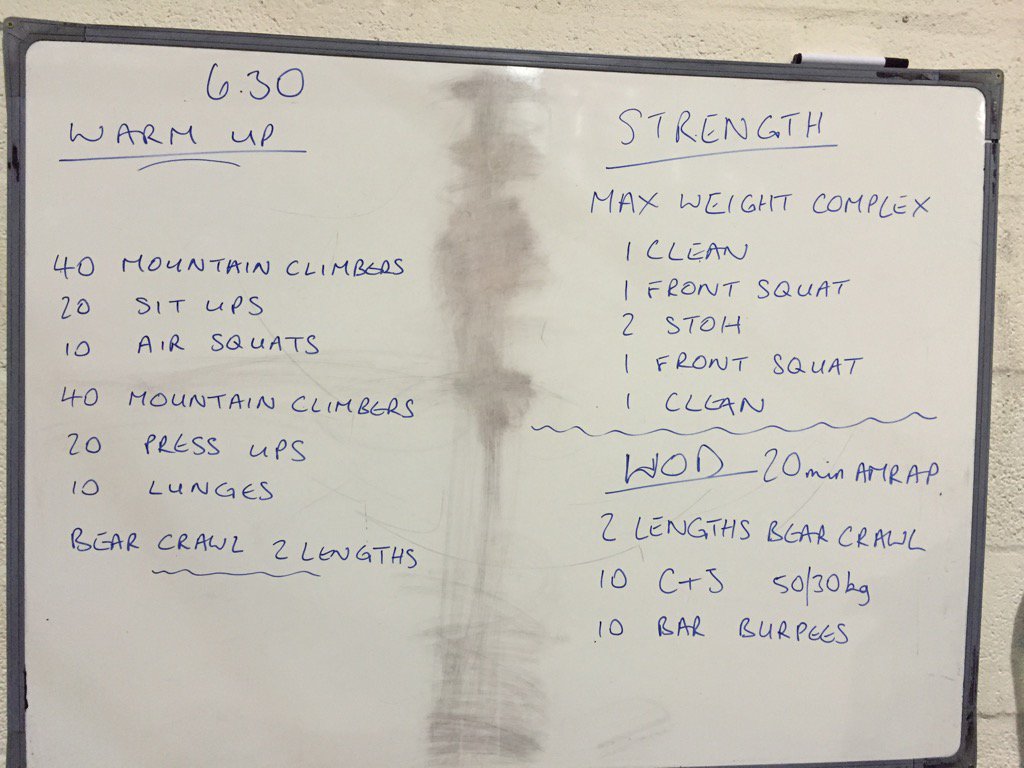 6.30
WARM UP
40 MOUNTAIN CLIMBERS
20 SIT UPS
10 AIR SQUATS
40 MOUNTAIN CLIMBERS
20 PRESS UPS
10 LUNGES
BEAR CRAWL 2 LENGTHS
STRENGTH
MAX WEIGHT COMPLEX
1 CLEAN
1 FRONT SQUAT
2 STOH
1 FRONT SQUAT
1 CLEAN
WOD - 20min AMRAP
2 LENGTHS BEAR CRAWL
10 C+J 50/30kg
10 BAR BURPEES